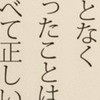 となく
ったことは
べて正しい